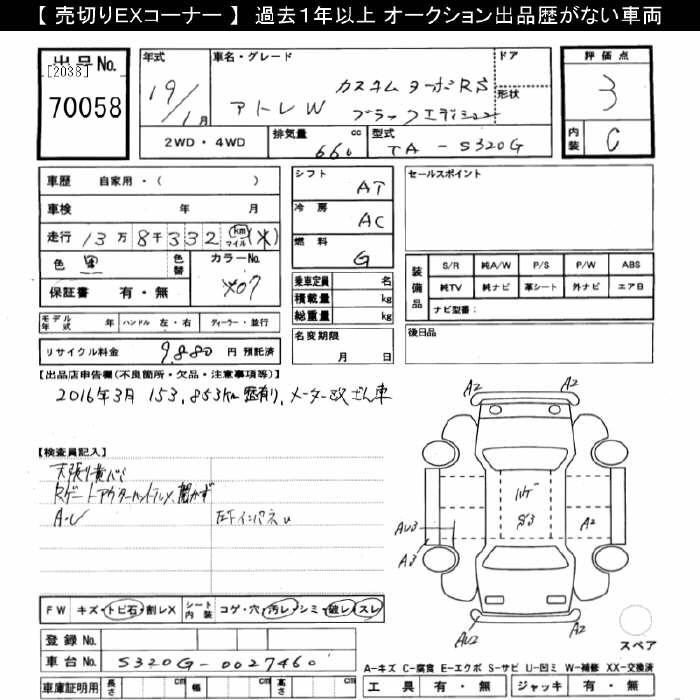 【 売切りEXコーナー 】 過去１年以上 オークション出品歴がない車両
出品No.
[2038]
70058
年式
19/1月
車名・グレード
アトレW
カスタムターボRS
ブラックエディション
ドア
形状
評価点
3
内装
C
2WD・4WD
排気量 660 cc
型式 TA-S320G
車歴 自家用・( )
車検 年 月
走行 13万8千332 km マイル (※)
色 黒
色替
カラーNo.
X07
保証書 有・無
シフト AT
冷房 AC
燃料 G
乗車定員 名
積載量 kg
総重量 kg
セールスポイント
装備品
S/R 純A/W P/S P/W ABS
純TV 純ナビ 革シート 外ナビ エアB
ナビ型番：
モデル年式 年 ハンドル 左・右 ディーラー・並行
リサイクル料金 9,880 円 預託済
名変期限
月 日
後日品
【出品店申告欄(不良箇所・欠品・注意事項等)】
2016年3月 153,853km 歴有り、メーター改ざん車
【検査員記入】
Rゲートアウターハンドル× 開かず
A・U
A2
A2
AU3
A3
S3
A2
AU2
A2
スペア
FW キズ・トビ石・割レX
シート内装 コゲ・穴・汚レ・シミ・破レ・スレ
登録No.
車台No. S320G-0027460
車庫証明用 長さ cm 幅 cm 高さ cm
A-キズ C-腐食 E-エクボ S-サビ U-凹ミ W-補修 XX-交換済
工具 有・無 ジャッキ 有・無